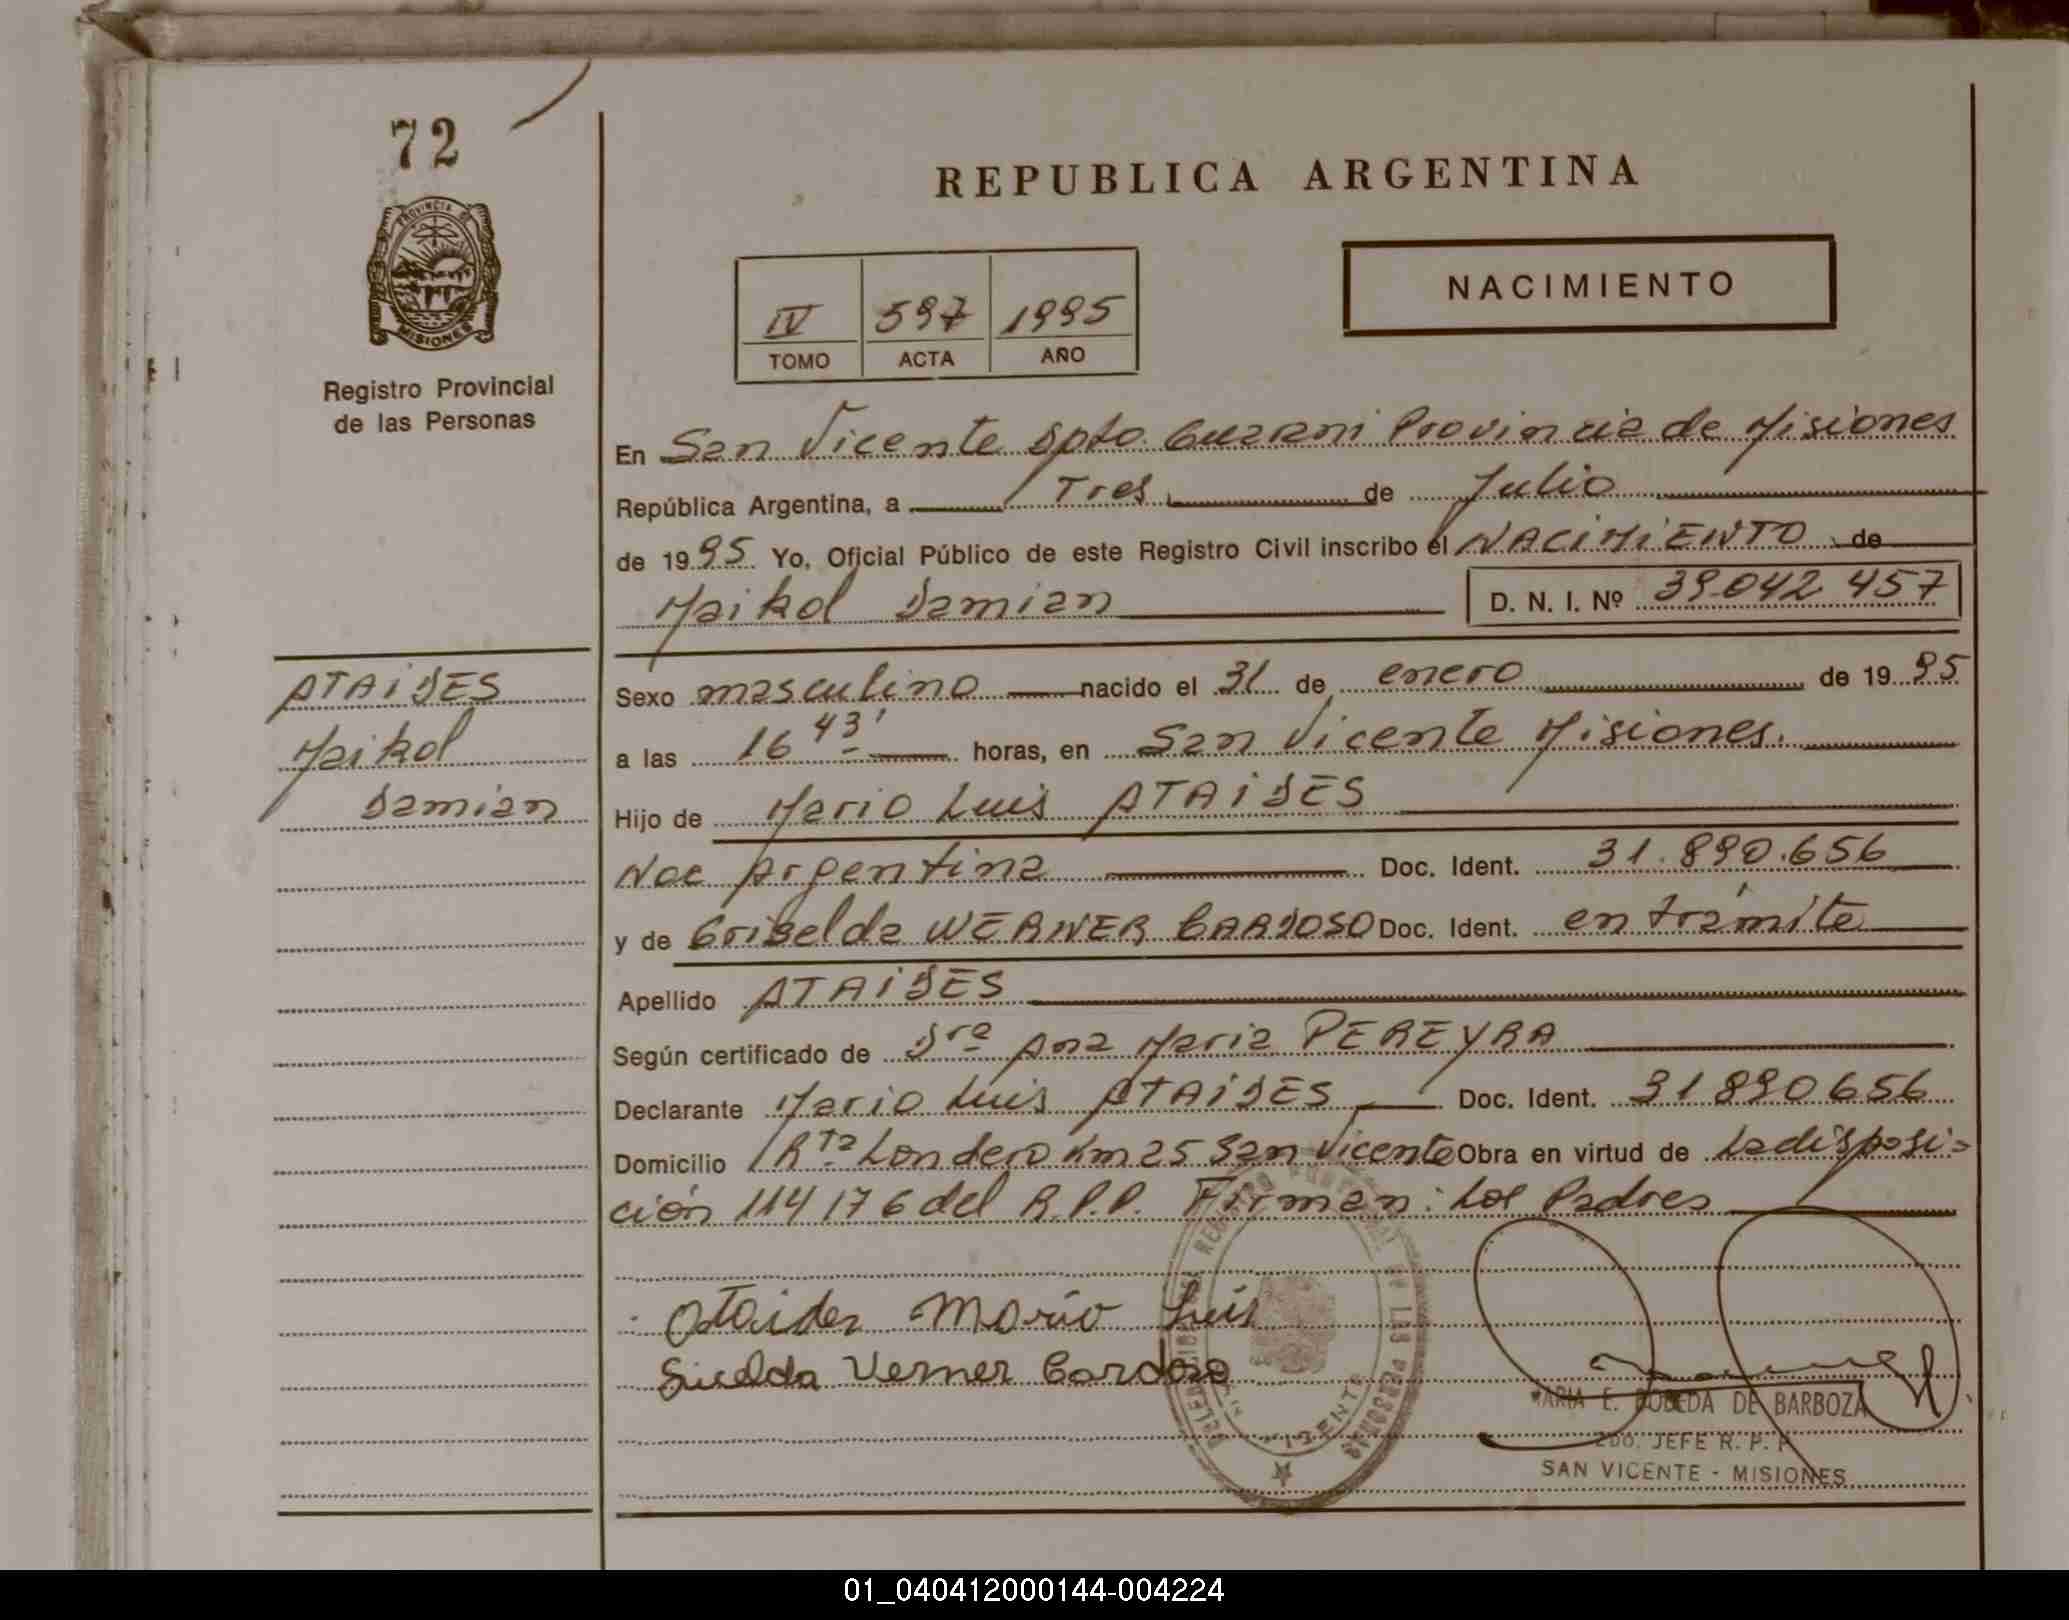 72
PROVINCIA DE
MISIONES
Registro Provincial
de las Personas
REPUBLICA ARGENTINA
NACIMIENTO
IV 597 1995
TOMO ACTA AÑO
En San Vicente Dpto. Guarani Provincia de Misiones
República Argentina, a Tres de Julio
de 1995 Yo, Oficial Público de este Registro Civil inscribo el NACIMIENTO de
Maikol Damian D. N. I. Nº 39.042 457
ATAIDES
Maikol
Damian
Sexo masculino nacido el 31 de enero de 1995
a las 16 43' horas, en San Vicente Misiones.
Hijo de Mario Luis ATAIDES
Nac Argentina Doc. Ident. 31.890.656
y de Griselda WERNER CARDOSO Doc. Ident. en trámite
Apellido ATAIDES
Según certificado de Dra Ana Maria PEREYRA
Declarante Mario Luis ATAIDES Doc. Ident. 31890656
Domicilio Rta Londero Km 25 San Vicente Obra en virtud de La disposi=
ción 114176 del R.P.P. Firman: Los Padres
Ataides Mario Luis
Verner Cardoso
MARIA E. DE BARBOZA
2DO. JEFE R. P. P.
SAN VICENTE - MISIONES
01_040412000144-004224